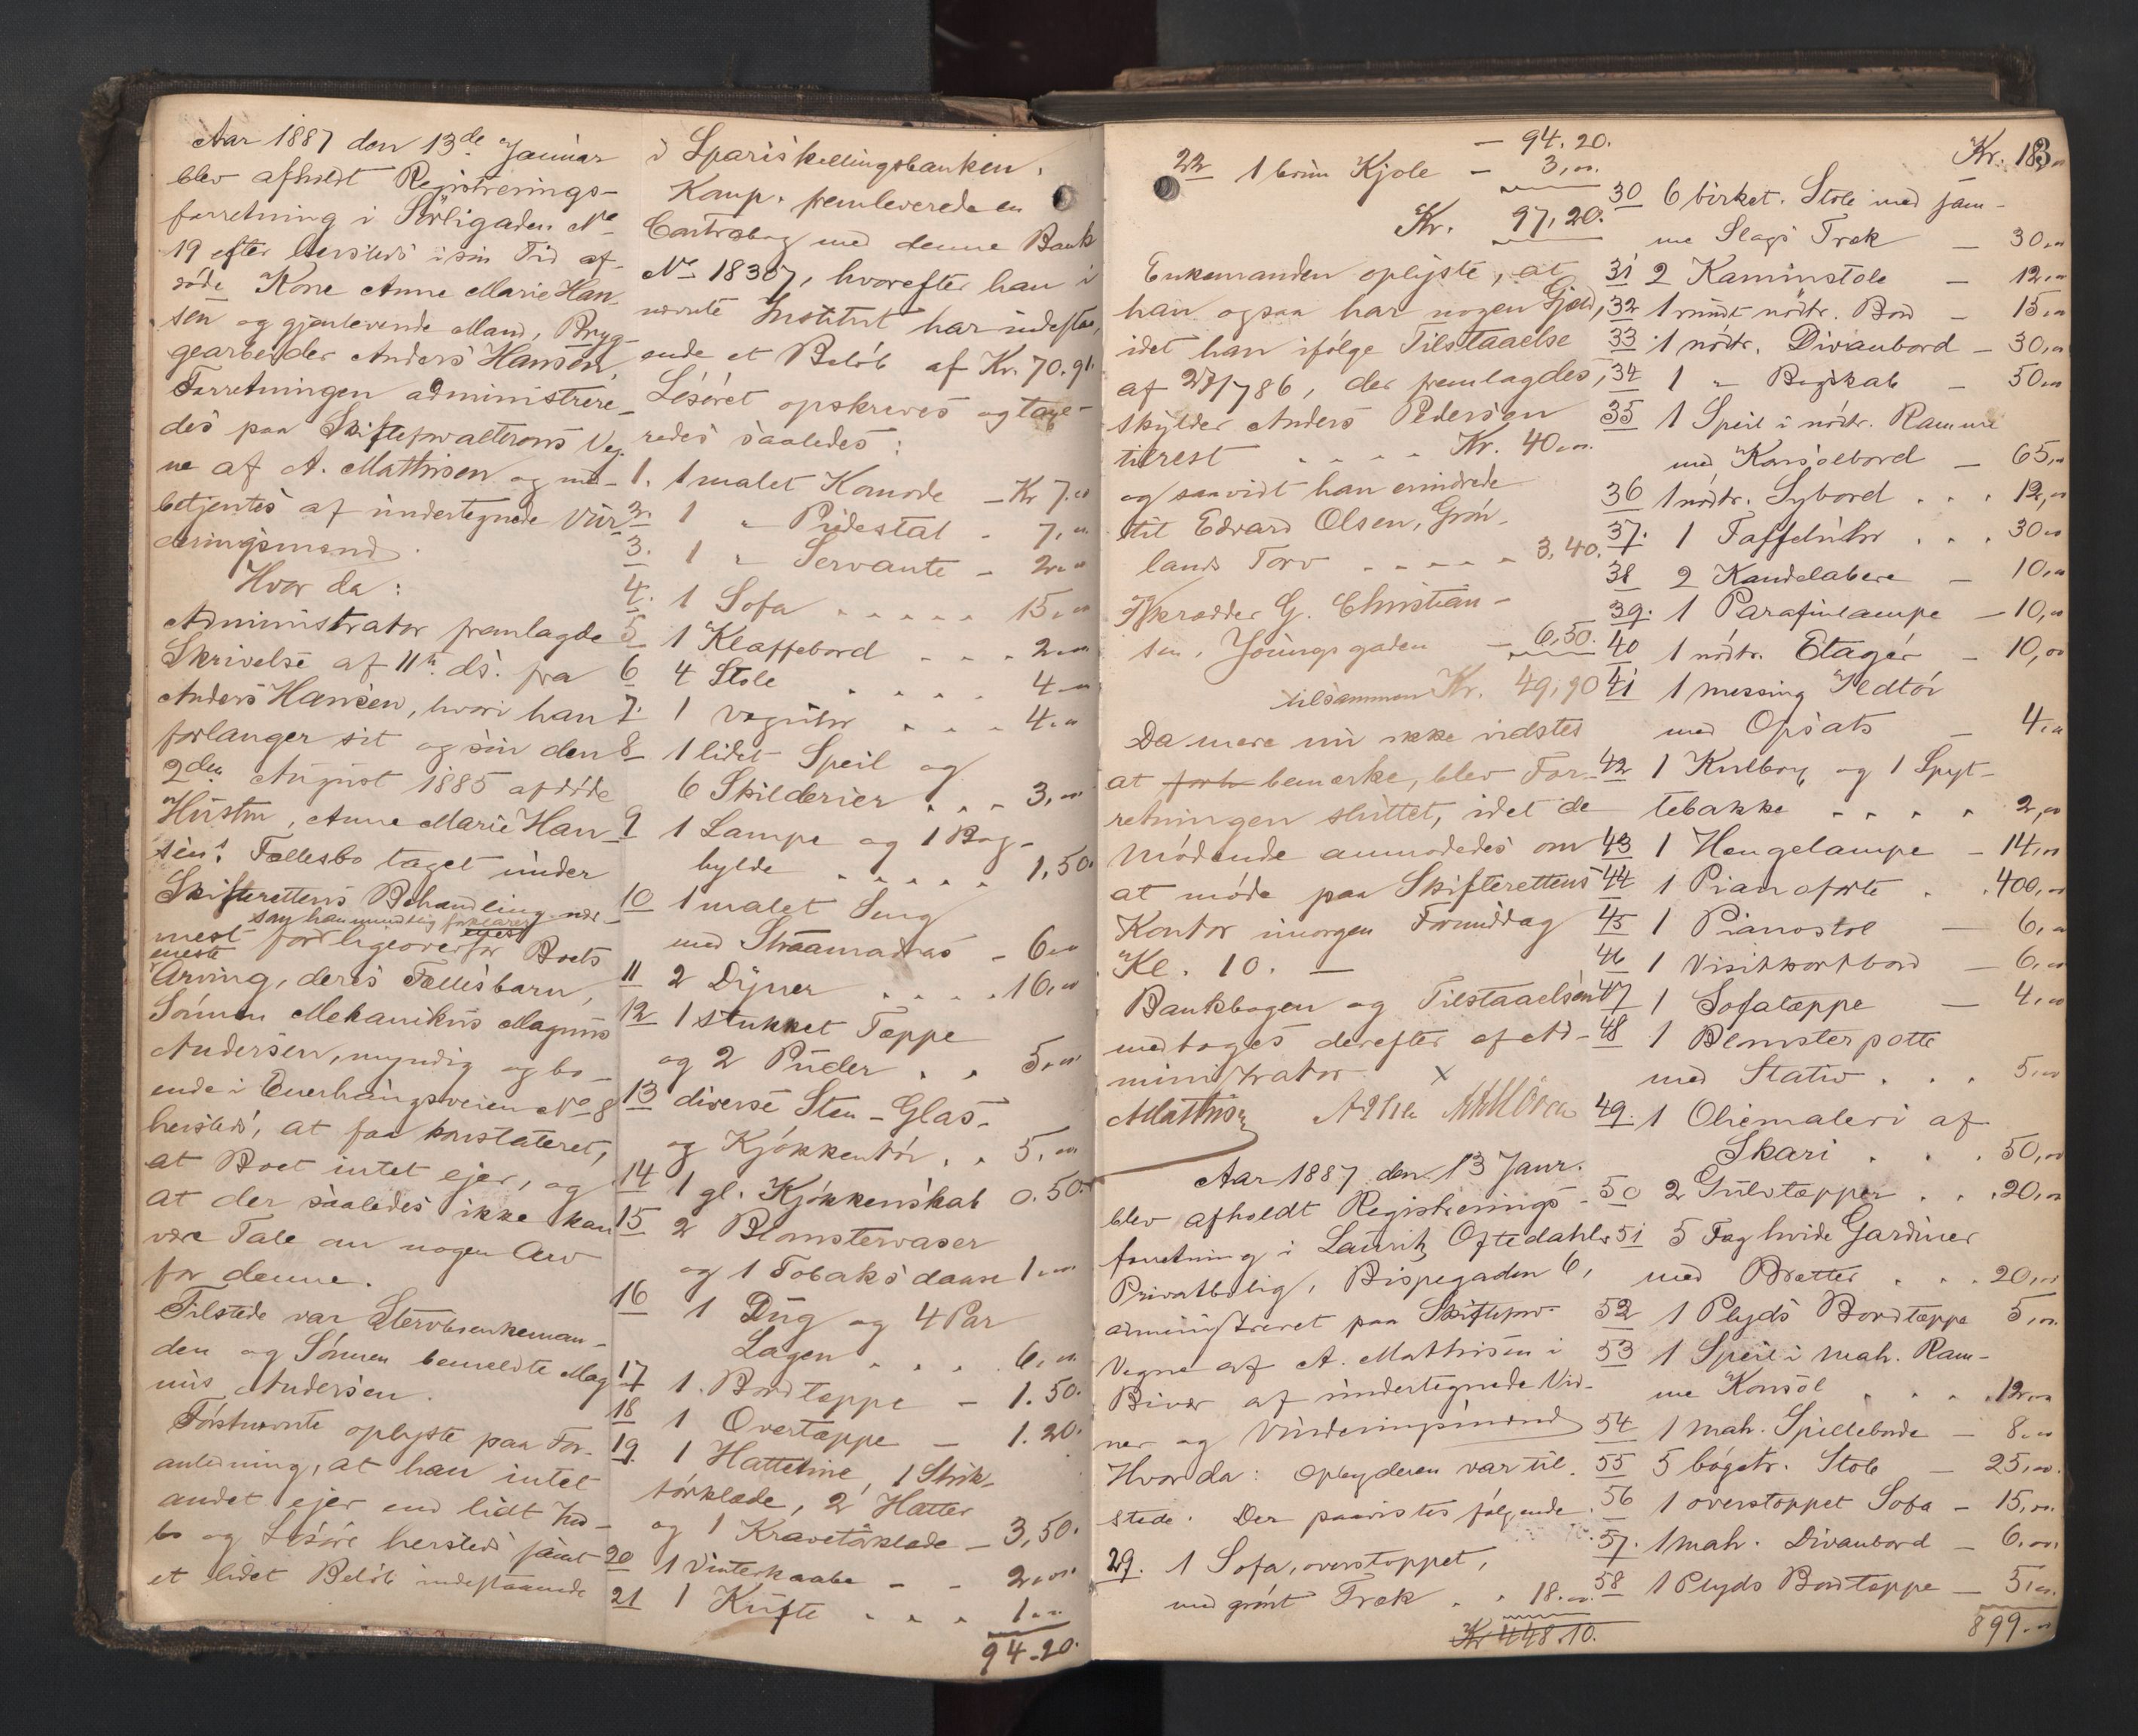 Aar 1887 den 13de Januar
blev afholdt Registrerings-
forretning i Sörligaden No
19 efter hersteds i sin Tid af-
döde Kone Anne Marie Han-
sen og gjenlevende Mand, Bryg-
gearbeider Anders Hansen.
Forretningen administrere-
des paa Skifteforvalterens Veg-
ne af A. Mathisen og med-
betjentes af undertegnede Vur-
deringsmænd.
Hvor da:
Administrator fremlagde
Skrivelse af 11te ds. fra
Anders Hansen, hvori han
forlanger sit og sin den
2den August 1885 afdöde
Hustru, Anne Marie Han-
sens Fællesbo taget under
Skifterettens Behandling nær-
som han mundtlig forklarer
mest for ligeoverfor Boets
eneste
Arving, deres Fællesbarn,
Sönnen Mekanikus Magnus
Andersen, myndig og bo-
ende i Enerhaugsveien No 8
hersteds, at faa konstateret,
at Boet intet ejer, og
at der saaledes ikke kan
være Tale om nogen Arv
for denne.
Tilstede var Stervboenkeman-
den og Sönnen bemeldte Mag
nus Andersen.
Förstnævnte oplyste paa For-
anledning, at han intet
andet ejer end lidt Ind-
bo og Lösöre hersteds samt
et lidet Belöb indestaaende
i Spariskillingsbanken.
Komp. fremleverede en
Contrabog med denne Bank
No 18307, hvorefter han i
nævnte Institut har indesta-
ende et Belöb af Kr. 70.91.
Lösöret opskreves og taxe-
redes saaledes:
1. 1 malet Komode - Kr 7.00
2. 1 " Pidestal - 7,00
3. 1 " Servante - 2.00
4. 1 Sofa 15,00
5 1 Klaffebord 2.00
6 4 Stole 4.00
7. 1 Væguhr 4.00
8 1 lidet Speil og
6 Skilderier 3,00
9 1 Lampe og 1 Bog-
hylde 1,50.
10 1 malet Seng
med Straamadras - 6.00
11 2 Dyner 16,00
12 1 stukket Tæppe
og 2 Puder 5,00
13 diverse Sten- Glas-
og Kjökkentöi 5,00
14 1 gl. Kjökkenskab 0.50.
15 2 Blomstervaser
og 1 Tobaksdaase 1.00
16 1 Dug og 4 Par
Lagen 6,00
17 1 Bordtæppe - 1.50.
18 1 Overtæppe - 1.20.
19 1 Hatteline, 1 Strik-
törklæde, 2 Hatter
og 1 Kravetörklæde - 3,50.
20 1 Vinterkaabe - - 2,00.
21 1 Kufte 1.00
94.20.
- 94.20.
22 1 brun Kjole - 3,00.
Kr. 97,20.
Enkemanden oplyste, at
han ogsaa har nogen Gjæld,
idet han ifölge Tilstaaelse
af 27/7 86, der fremlagdes,
skylder Anders Pedersen
tilrest Kr. 40.00.
og saavidt han erindrede
til Edvard Olsen, Grön-
lands Torv 3,40.
Skrædder G. Christian-
sen, Youngsgaden - 6,50.
tilsammen Kr. 49,90
Da mere nu ikke vidstes
at forb bemærke, blev For-
retningen sluttet, idet de
Mödende anmodedes om
at möde paa Skifterettens
Kontor imorgen Formiddag
Kl. 10. —
Bankbogen og Tilstaaelsen
medtoges derefter af Ad-
ministrator.
AMathisen
Aar 1887 den 13 Janr.
blev afholdt Registrerings-
forretning i Lauritz Oftedahls
Privatbolig, Bispegaden 6,
administreret paa Skifteforv
Vegne af A. Mathisen i
Bivær af undertegnede Vid-
ner og Vurderingsmænd
Hvor da: Opbyderen var til
stede. Der paavistes fölgende
29. 1 Sofa, overstoppet,
med grönt Træk 18.00
Kr 448.10.
Kr. 183,00
30 6 birket. Stole med sam-
me Slags Træk - 30,00
31 2 Kaminstole - 12,00
32 1 rundt nödtr. Bord - 15,00
33 1 nödtr. Divanbord - 30,00
34 1 " Bogskab - 50,00
35 1 Speil i nödtr. Ramme
med Konsolbord - 65,00
36 1 nödtr. Sybord 12,00
37. 1 Taffeluhr 30,00
38 2 Kandelabere - 10,00
39. 1 Parafinlampe - 10,00
40 1 nödtr. Etagér - 10,00
41 1 messing Ildtöi
med Opsats - 4,00
42 1 Kulborg og 1 Spyt-
tebakke 2,00
43 1 Hengelampe - 14,00
44 1 Pianoforte 400,00
45 1 Pianostol - 6,00
46 1 Visitkortbord - 6,00
47 1 Sofatæppe - 4,00
48 1 Blomsterpotte
med Stativ 5,00
49. 1 Oliemaleri af
Skari 50,00
50 2 Gulvtæpper 20,00
51 5 Fag hvide Gardiner
med Brætter 20,00
52 1 Plyds Bordtæppe 5,00
53 1 Speil i mah. Ram-
me Konsol 12,00
54 1 mah. Spillebord - 8,00
55 5 bögetr. Stole - 25,00.
56 1 overstoppet Sofa - 15,00.
57. 1 mah. Divanbord - 6,00
58 1 Plyds Bordtæppe - 5,00.
899.00